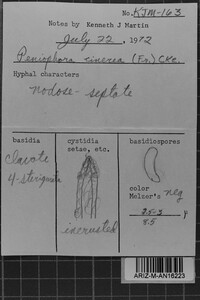 No. KJM-163
Notes by Kenneth J Martin
July 22, 1972
Peniophora cinerea (Fr.) Cke.
Hyphal characters
nodose-septate
basidia cystidia basidiospores
setae, etc.
clavate
4-sterigmata
incrusted
color
Melzer's neg
μ
ARIZ-M-AN16223